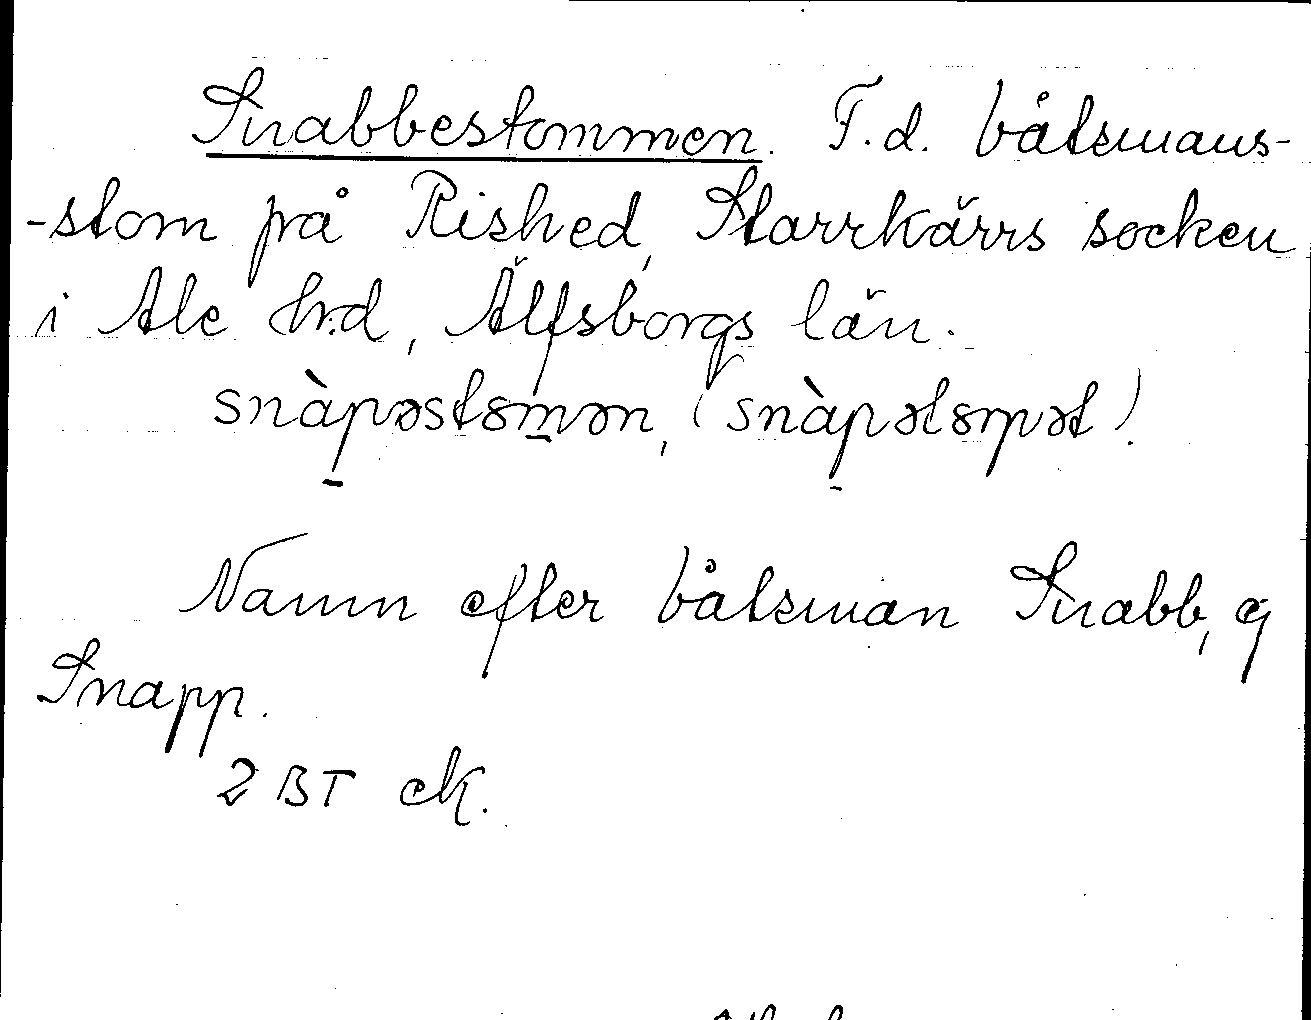 Snabbestommen. F.d. båtsmans-
-stom på Rished, Starrkärrs socken
i Ale h:d, Älfsborgs län.
snàpəstomən, (snàpətorpət).
Namn efter båtsman Snabb, ej
Snapp.
2 BT ek.